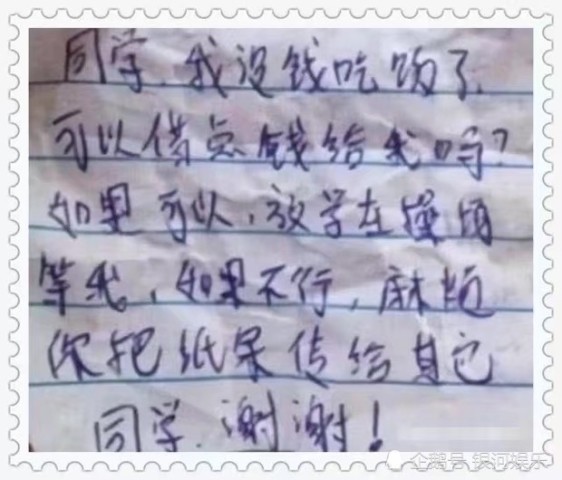 同学，我没钱吃饭了，
可以借点钱给我吗？
如果可以，放学在操场
等我，如果不行，麻烦
你把纸条传给其它
同学，谢谢！
企鹅号 银河娱乐